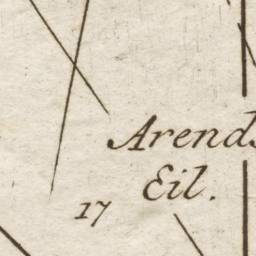 Arends
Eil.
17